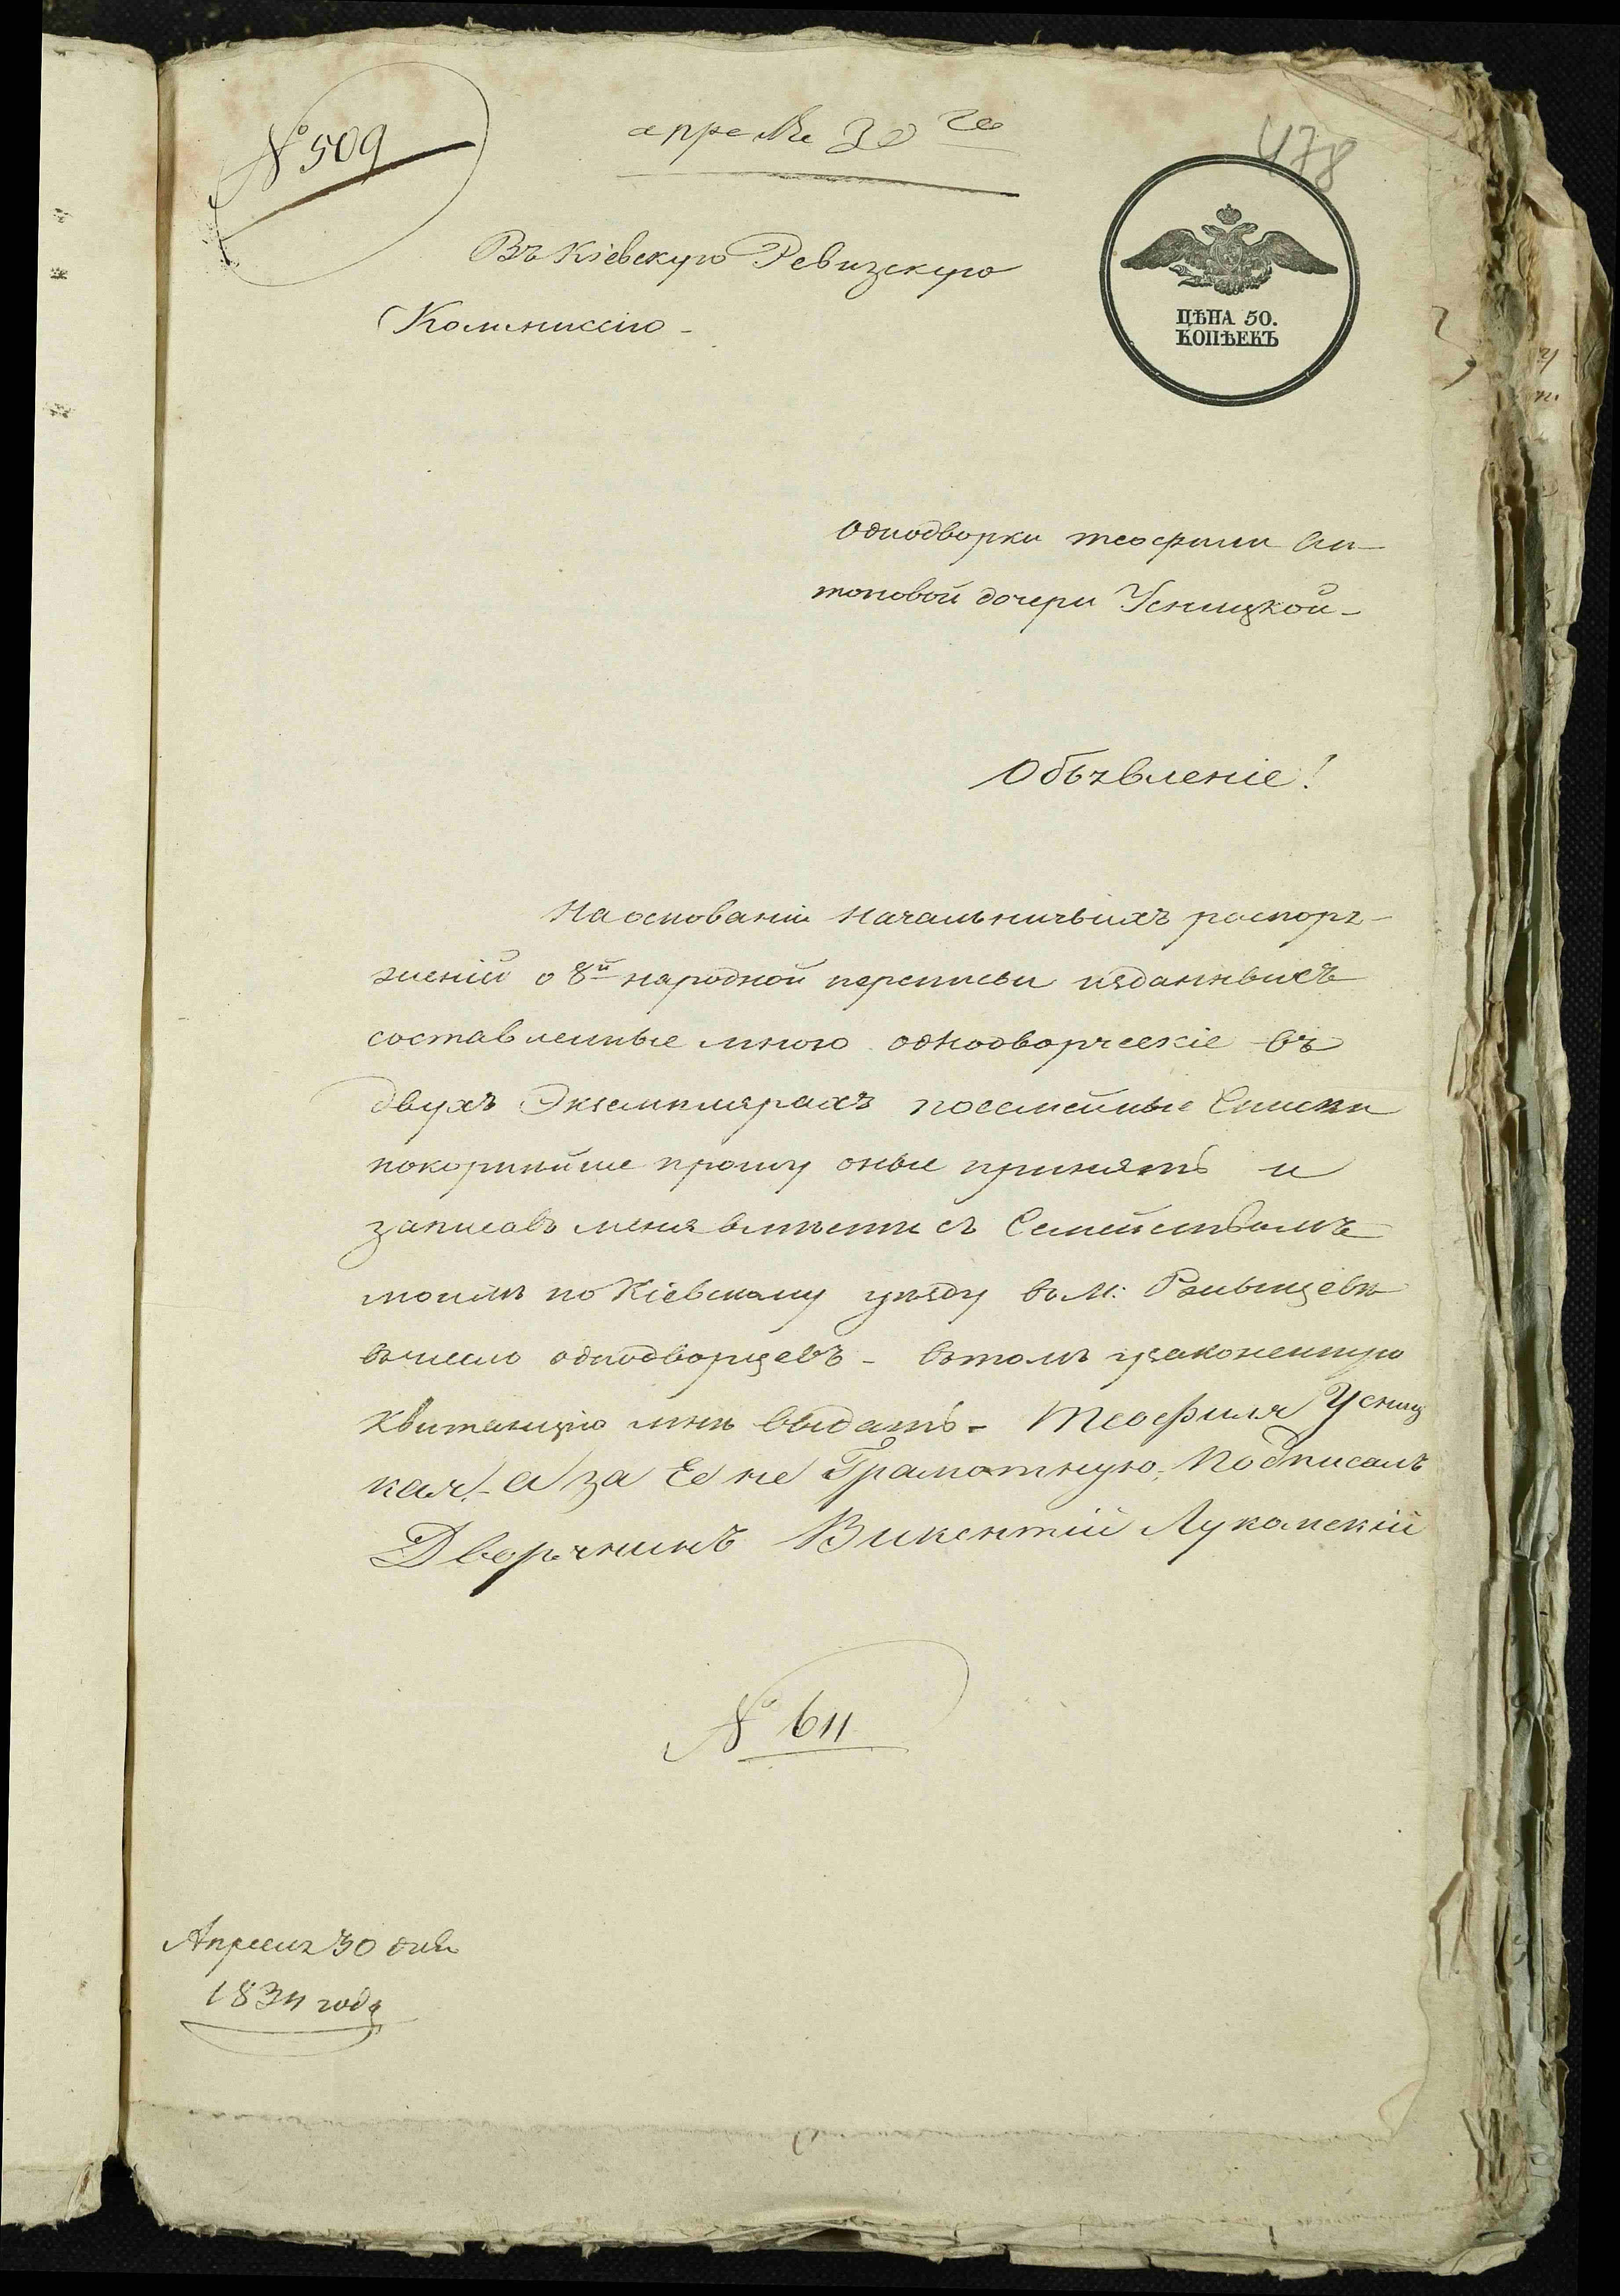 № 509
апреля 30 го
478
Въ Кіевскую Ревизскую
Коммиссію -
ЦѢНА 50.
КОПѢЕКЪ
Однодворки теофили Ан-
тоновой дочери Усницкой -
Объявленіе!
На основаніи начальничьихъ распоря-
женій о 8й народной переписьи изданныхъ
составленные мною однодворческіе въ
двухъ Экземплярахъ посемейные Списки
покорнѣйше прошу оные принять и
записавъ меня вмѣсти съ Семействомъ
моимъ по Кіевскому уѣзду въ М:
въ число однодворцевъ - в томъ узаконенную
Квитанцію мнѣ выдать - Теофиля Усниц
кая - а за Ее не Грамотную, Подписалъ
Дворянинъ Викентій Лукомскій
№ 611
Апреля 30 дня
1834 года